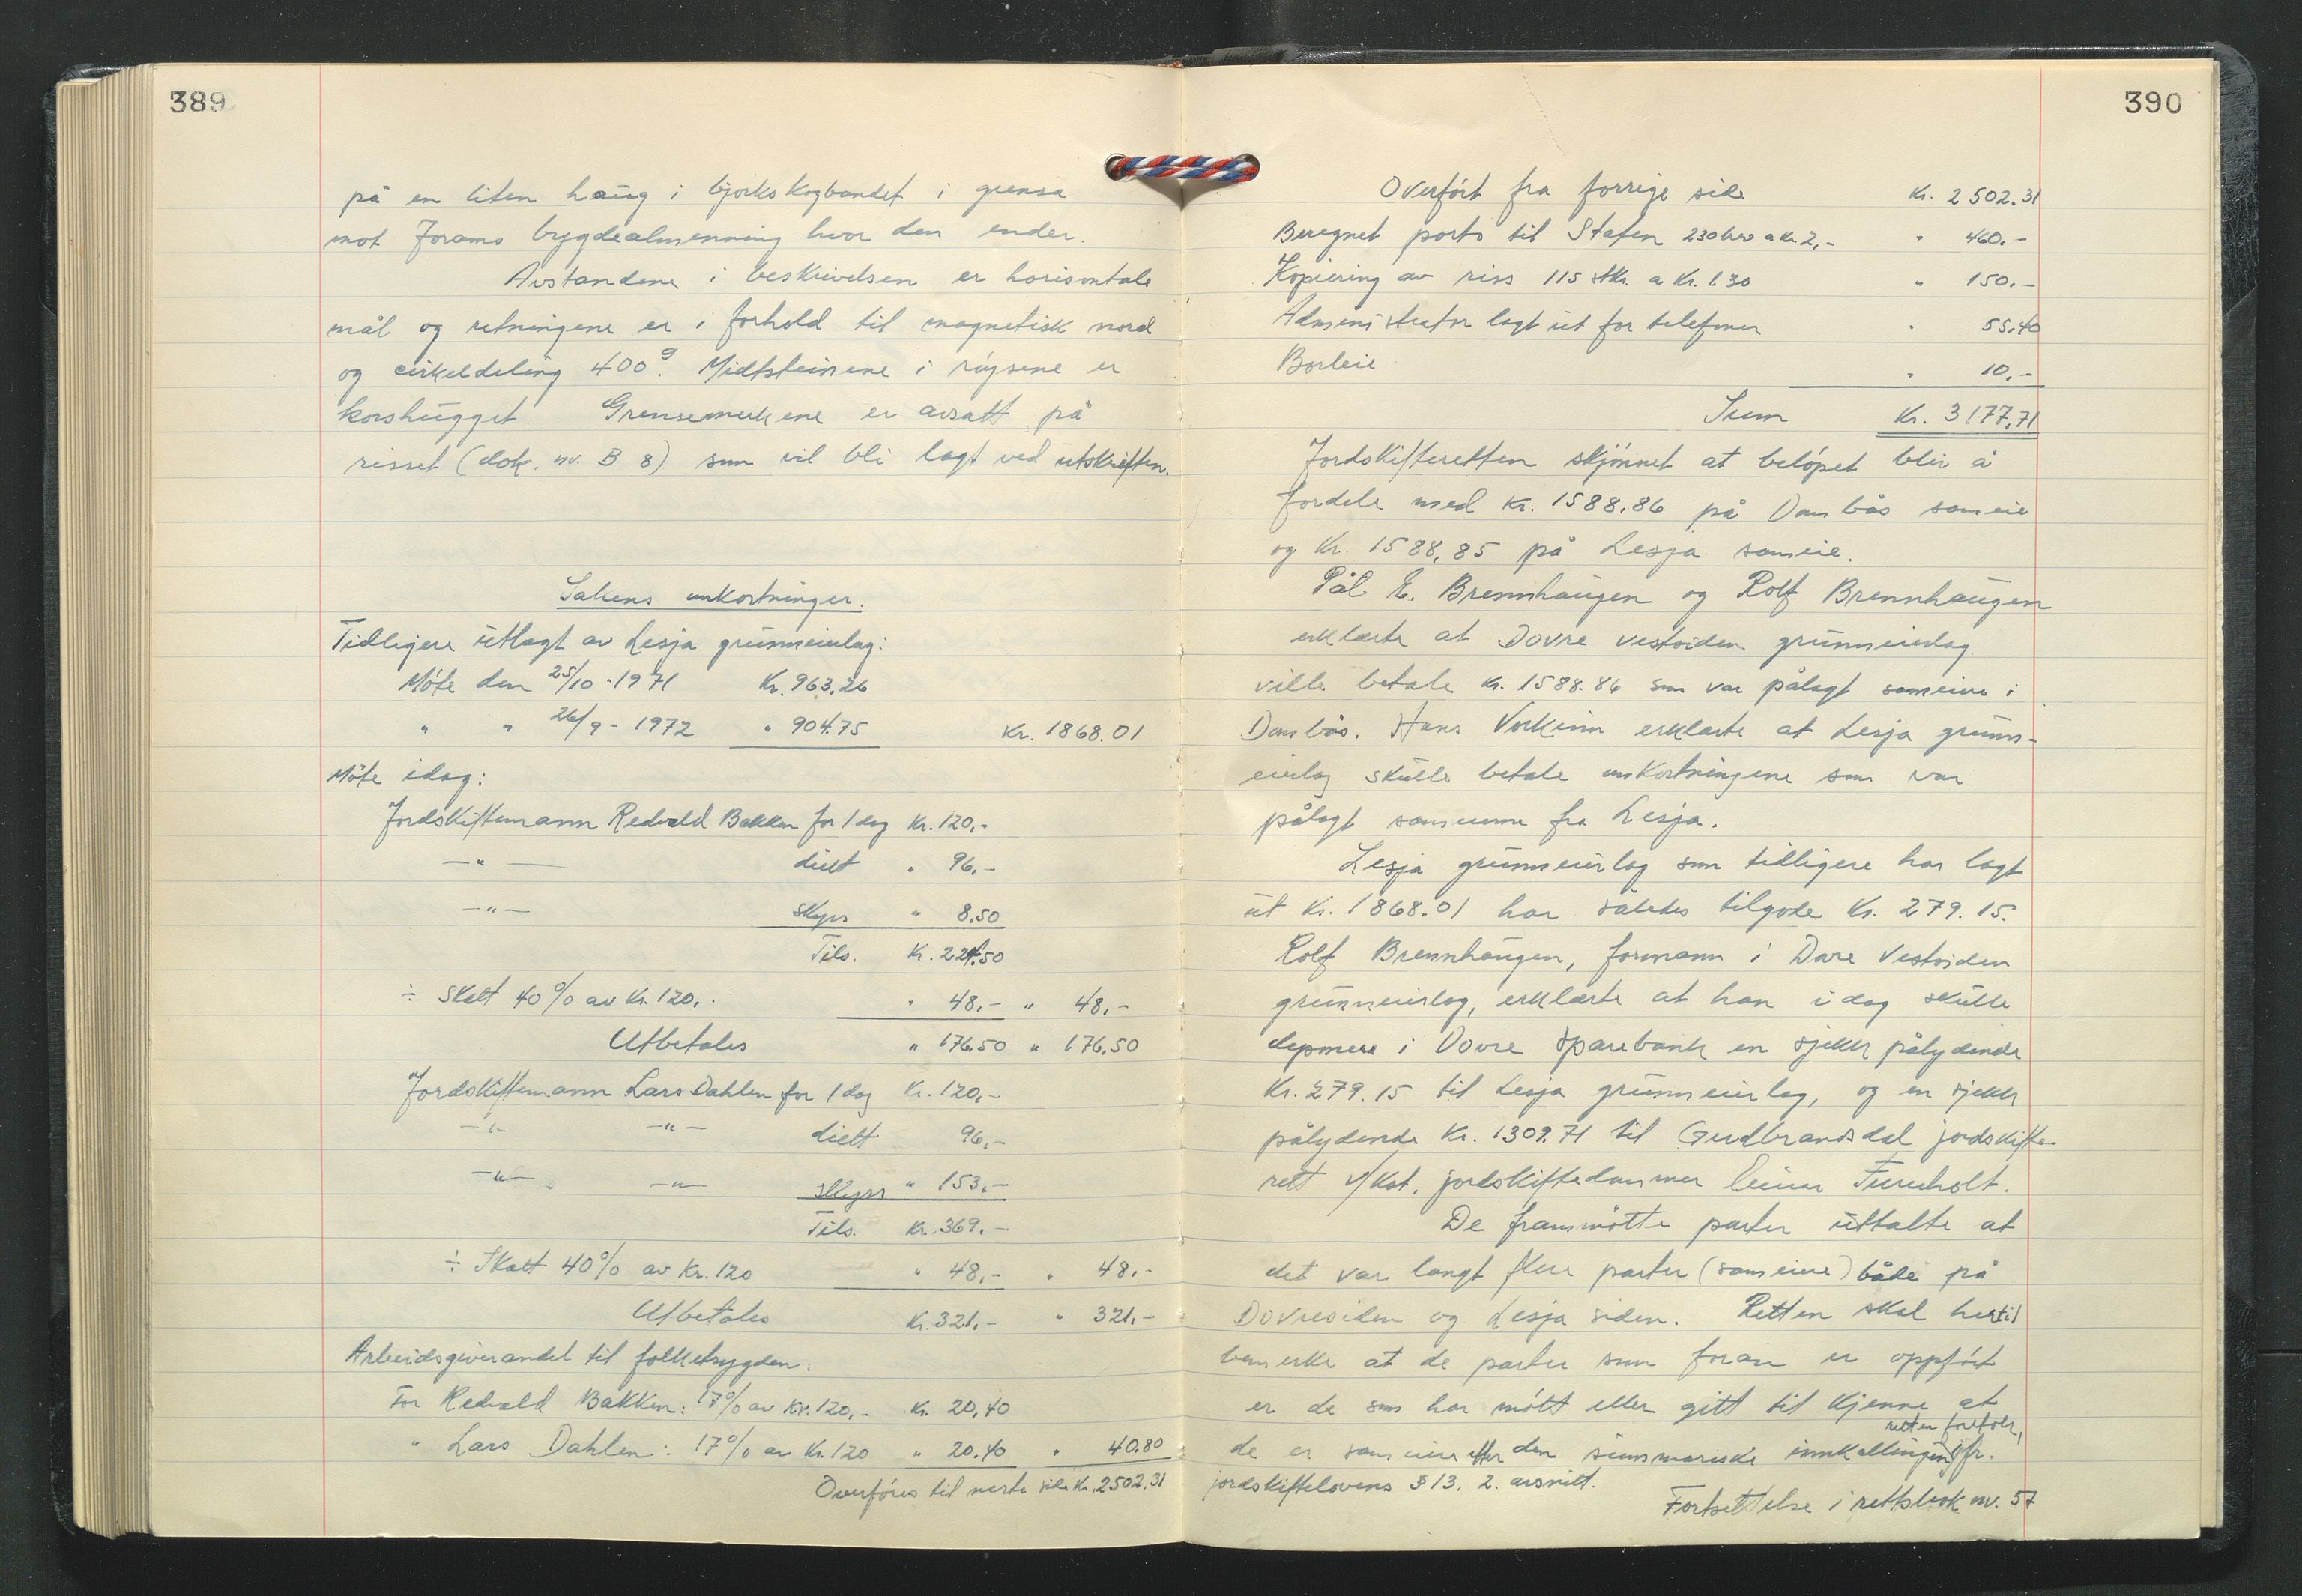 389
på en liten haug i bjørkskogbandet i grensa
mot Joramo bygdealmenning hvor den ender.
Avstandene i beskrivelsen er horisontale
mål og retningene er i forhold til magnetisk nord
og cirkeldeling 400g. Midtsteinene i røysene er
korshugget. Grensemerkene er avsatt på
risset (dok. nr. B 8) som vil bli lagt ved utskriften.
Sakens omkostninger.
Tidligere utlagt av Lesja grunneierlag:
Møte den 25/10-1971 Kr. 963.26
" " 26/9-1972 " 904.75 Kr. 1868.01
Møte idag:
Jordskiftemann Redvald Bakken for 1 dag Kr. 120,-
—"— diett " 96,-
—"— skyss " 8,50
Tils. Kr. 224.50
÷ Skatt 40% av Kr. 120,- " 48,- " 48,-
Utbetales " 176.50 " 176,50
Jordskiftemann Lars Dahlen for 1 dag Kr. 120,-
—"— —"— diett 96,-
—"— —"— skyss " 153,-
Tils. Kr. 369,-
÷ Skatt 40% av Kr. 120 " 48,- " 48,-
Utbetales Kr. 321,- " 321,-
Arbeidsgiverandel til folketrygden:
For Redvald Bakken: 17% av Kr. 120,- Kr. 20,40
" Lars Dahlen: 17% av Kr. 120 " 20.40 " 40.80
Overføres til neste side Kr. 2502,31
390
Overført fra forrige side Kr. 2 502.31
Beregnet porto til Staten 230 brev a kr. 2,- " 460,-
Kopiering av riss 115 stk. a Kr. 1.30 " 150,-
Administrator lagt ut for telefoner " 55,40
Borleie " 10,-
Sum Kr. 3177,71
Jordskifteretten skjønnet at beløpet blir å
fordele med Kr. 1588.86 på Dombås sameie
og Kr. 1588,85 på Lesja sameie.
Pål E. Brennhaugen og Rolf Brennhaugen
erklærte at Dovre vestsiden grunneierlag
ville betale Kr. 1588.86 som var pålagt sameiere i
Dombås. Hans Vorkinn erklærte at Lesja grunn-
eierlag skulle betale omkostningene som var
pålagt sameierne fra Lesja.
Lesja grunneierlag som tidligere har lagt
ut Kr. 1868.01 har således tilgode Kr. 279.15.
Rolf Brennhaugen, formann i Dovre Vestsiden
grunneierlag, erklærte at han idag skulle
deponere i Dovre Sparebank en sjekk pålydende
Kr. 279.15 til Lesja grunneierlag, og en sjekk
pålydende Kr. 1309.71 til Gudbrandsdal jordskifte-
rett v/Kst. jordskiftedommer Einar Furuholt.
De frammøtte parter uttalte at
det var langt flere parter (sameiere) både på
Dovresiden og Lesja siden. Retten skal hertil
bemerke at de parter som foran er oppført
er de som har møtt eller gitt til kjenne at
de er sameiere etter den summariske innkallingen retten foretok, jfr.
jordskiftelovens § 13, 2. avsnitt.
Fortsettelse i rettsbok nr. 57